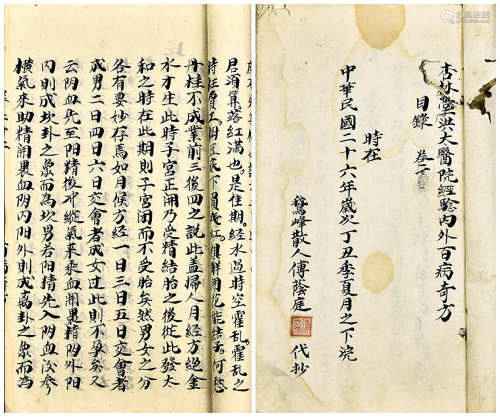 杏林盛洪大醫院經驗內外百病奇方
目錄 卷二
時在
中華民國二十六年歲次丁丑季夏月之下浣
鷲峰散人傅蔭庭
代抄
紅滿也是佳期經水過時空霍乱霍乱之
時枉費工 開花能結子何愁
丹桂不成業前三後四之說此盖婦人月經方絕金
水才生此時子宮正開乃受精結胎之後從此發太
和之時在此期則子宮閉而不受胎矣然男女之分
各有要抄存焉如月候方經一日三日五日交會者
成男二日四日六日交會者成女过此則不孕矣又
云阴血先至阳精後冲縱氣來乘血開裹精阴外阳
內則成坎卦之象而為坎男若阳精先入阴血後參
橫氣來助精開裹血阴內阳外則成离卦之象而為